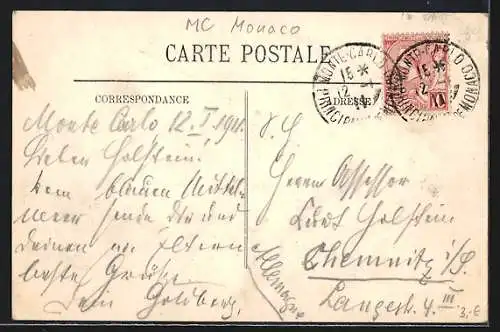 MC Monaco
CARTE POSTALE
CORRESPONDANCE
ADRESSE
MONTE-CARLO
15 *
12
PRINCIPAUTÉ DE MONACO
MONTE-CARLO
15 *
PRINCIPAUTÉ DE MONACO
Monte Carlo 12. I. 1911.
Lieber Holstein!
Vom blauen Mittel-
meer sende Dir und
Deinen Eltern
beste Grüße
Dein Goldberg.
S. H.
Herrn Assessor
Curt Holstein
Chemnitz i/S.
Langestr. 4. III
Allemagne
3,-E